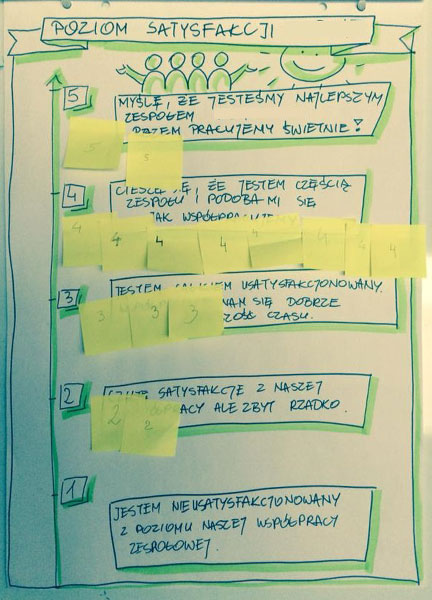 POZIOM SATYSFAKCJI
5
MYŚLĘ, ŻE JESTEŚMY NAJLEPSZYM
ZESPOŁEM
RAZEM PRACUJEMY ŚWIETNIE!
5 5
4
CIESZĘ SIĘ, ŻE JESTEM CZĘŚCIĄ
ZESPOŁU I PODOBA MI SIĘ
JAK WSPÓŁPRACUJEMY
4 4 4 4 4 4 4 4
3
JESTEM CAŁKIEM USATYSFAKCJONOWANY.
NAM SIĘ DOBRZE
CZASU.
3 3 3
2
SATYSFAKCJĘ Z NASZEJ
WSPÓŁPRACY ALE ZBYT RZADKO.
2 2
1
JESTEM NIEUSATYSFAKCJONOWANY
Z POZIOMU NASZEJ WSPÓŁPRACY
ZESPOŁOWEJ.